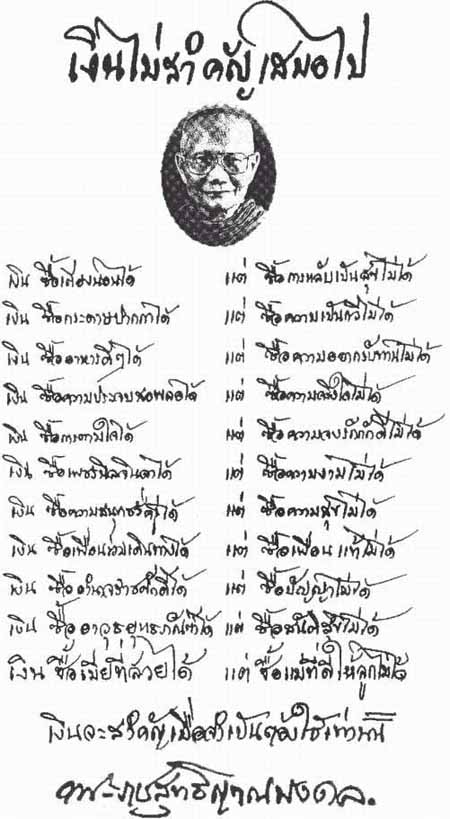 เงินไม่สำคัญเสมอไป
เงิน ซื้อเตียงนอนได้ แต่ ซื้อการหลับเป็นสุขไม่ได้
เงิน ซื้อกระดาษปากกาได้ แต่ ซื้อความเป็นกวีไม่ได้
เงิน ซื้ออาหารดีๆได้ แต่ ซื้อความอยากรับทานไม่ได้
เงิน ซื้อความประจบสอพลอได้ แต่ ซื้อความจริงใจไม่ได้
เงิน ซื้อการตามใจได้ แต่ ซื้อความจงรักภักดีไม่ได้
เงิน ซื้อเพชรนิลจินดาได้ แต่ ซื้อความงามไม่ได้
เงิน ซื้อความสนุกชั่วครู่ได้ แต่ ซื้อความสุขไม่ได้
เงิน ซื้อเพื่อนร่วมเดินทางได้ แต่ ซื้อเพื่อนแท้ไม่ได้
เงิน ซื้ออำนาจราชศักดิ์ได้ แต่ ซื้อปัญญาไม่ได้
เงิน ซื้ออาวุธยุทธภัณฑ์ได้ แต่ ซื้อสันติสุขไม่ได้
เงิน ซื้อเมียที่สวยได้ แต่ ซื้อแม่ที่ดีให้ลูกไม่ได้
เงินจะสำคัญเมื่อจำเป็นต้องใช้เท่านั้น
พระราชสุทธิญาณมงคล.